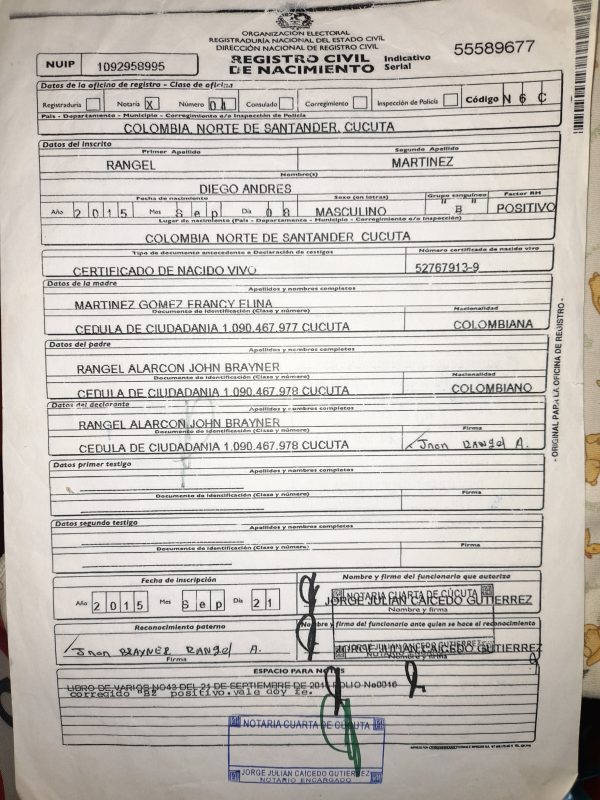 ORGANIZACIÓN ELECTORAL
REGISTRADURÍA NACIONAL DEL ESTADO CIVIL
DIRECCIÓN NACIONAL DE REGISTRO CIVIL
NUIP 1092958995
REGISTRO CIVIL DE NACIMIENTO
Indicativo Serial 55589677
Datos de la oficina de registro - Clase de oficina
Registraduría Notaría X Número 04 Consulado Corregimiento Inspección de Policía Código N 6 C
País - Departamento - Municipio - Corregimiento e/o Inspección de Policía
COLOMBIA, NORTE DE SANTANDER, CUCUTA
Datos del inscrito
Primer Apellido Segundo Apellido
RANGEL MARTINEZ
Nombre(s)
DIEGO ANDRES
Fecha de nacimiento Sexo (en letras) Grupo sanguíneo Factor RH
Año 2015 Mes Sep Día 08 MASCULINO "B" POSITIVO
Lugar de nacimiento (País - Departamento - Municipio - Corregimiento e/o Inspección)
COLOMBIA NORTE DE SANTANDER CUCUTA
Tipo de documento antecedente o Declaración de testigos Número certificado de nacido vivo
CERTIFICADO DE NACIDO VIVO 52767913-9
Datos de la madre
Apellidos y nombres completos
MARTINEZ GOMEZ FRANCY ELINA
Documento de Identificación (Clase y número) Nacionalidad
CEDULA DE CIUDADANIA 1.090.467.977 CUCUTA COLOMBIANA
Datos del padre
Apellidos y nombres completos
RANGEL ALARCON JOHN BRAYNER
Documento de Identificación (Clase y número) Nacionalidad
CEDULA DE CIUDADANIA 1.090.467.978 CUCUTA COLOMBIANO
Datos del declarante
Apellidos y nombres completos
RANGEL ALARCON JOHN BRAYNER
Documento de Identificación (Clase y número) Firma
CEDULA DE CIUDADANIA 1.090.467.978 CUCUTA Jhon RANGel A.
Datos primer testigo
Apellidos y nombres completos
Documento de Identificación (Clase y número) Firma
Datos segundo testigo
Apellidos y nombres completos
Documento de Identificación (Clase y número) Firma
Fecha de inscripción Nombre y firma del funcionario que autoriza
Año 2015 Mes Sep Día 21
NOTARIA CUARTA DE CÚCUTA
JORGE JULIAN CAICEDO GUTIERREZ
Nombre y firma
Reconocimiento paterno Nombre y firma del funcionario ante quien se hace el reconocimiento
Jhon BRAYNER RANGel A. JORGE JULIAN CAICEDO GUTIERREZ
Firma Nombre y firma
ESPACIO PARA NOTAS
LIBRO DE VARIOS No43 DEL 21 DE SEPTIEMBRE DE FOLIO No0016
corregido positivo.vale doy fe.
NOTARIA CUARTA DE CÚCUTA
JORGE JULIAN CAICEDO GUTIERREZ
NOTARIO ENCARGADO
- ORIGINAL PARA LA OFICINA DE REGISTRO -